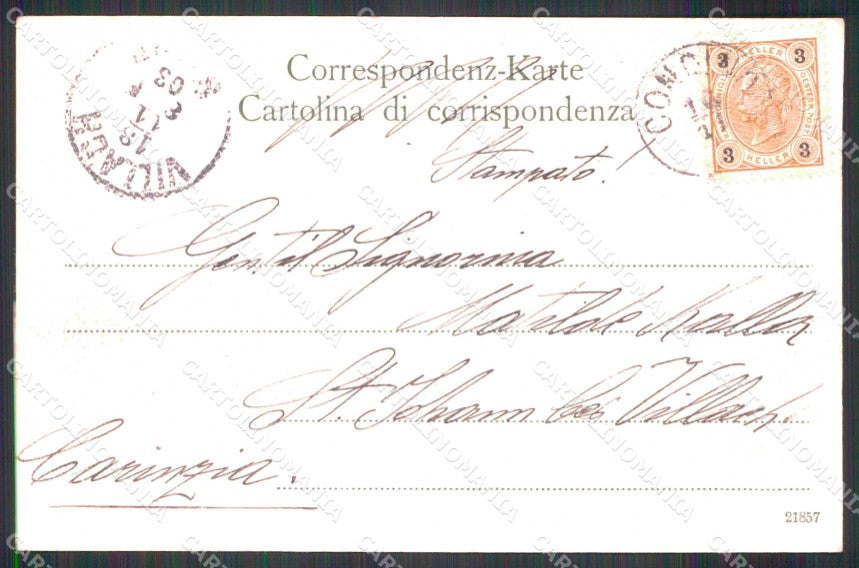 Correspondenz-Karte
Cartolina di corrispondenza
Stampato!
Gentil Signorina
Matilde
St. Johann bei Villach
Carinzia.
21857
VILLACH
13 11
03
3 HELLER 3
3 HELLER 3
CARTOLINOMANIA